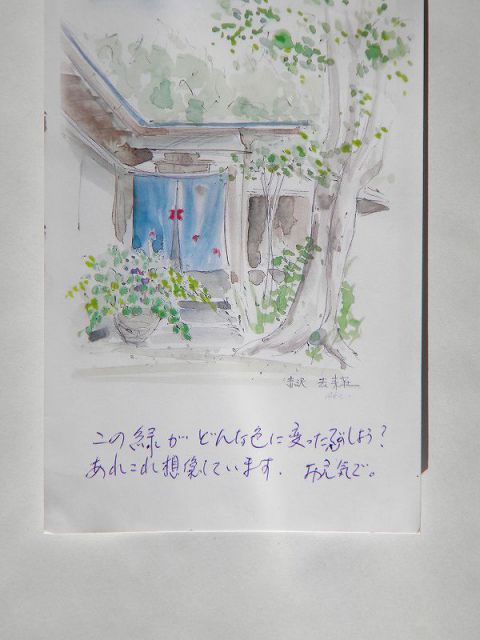 この緑がどんな色に変ったでしょう?
あれこれ想像しています. お元気で。